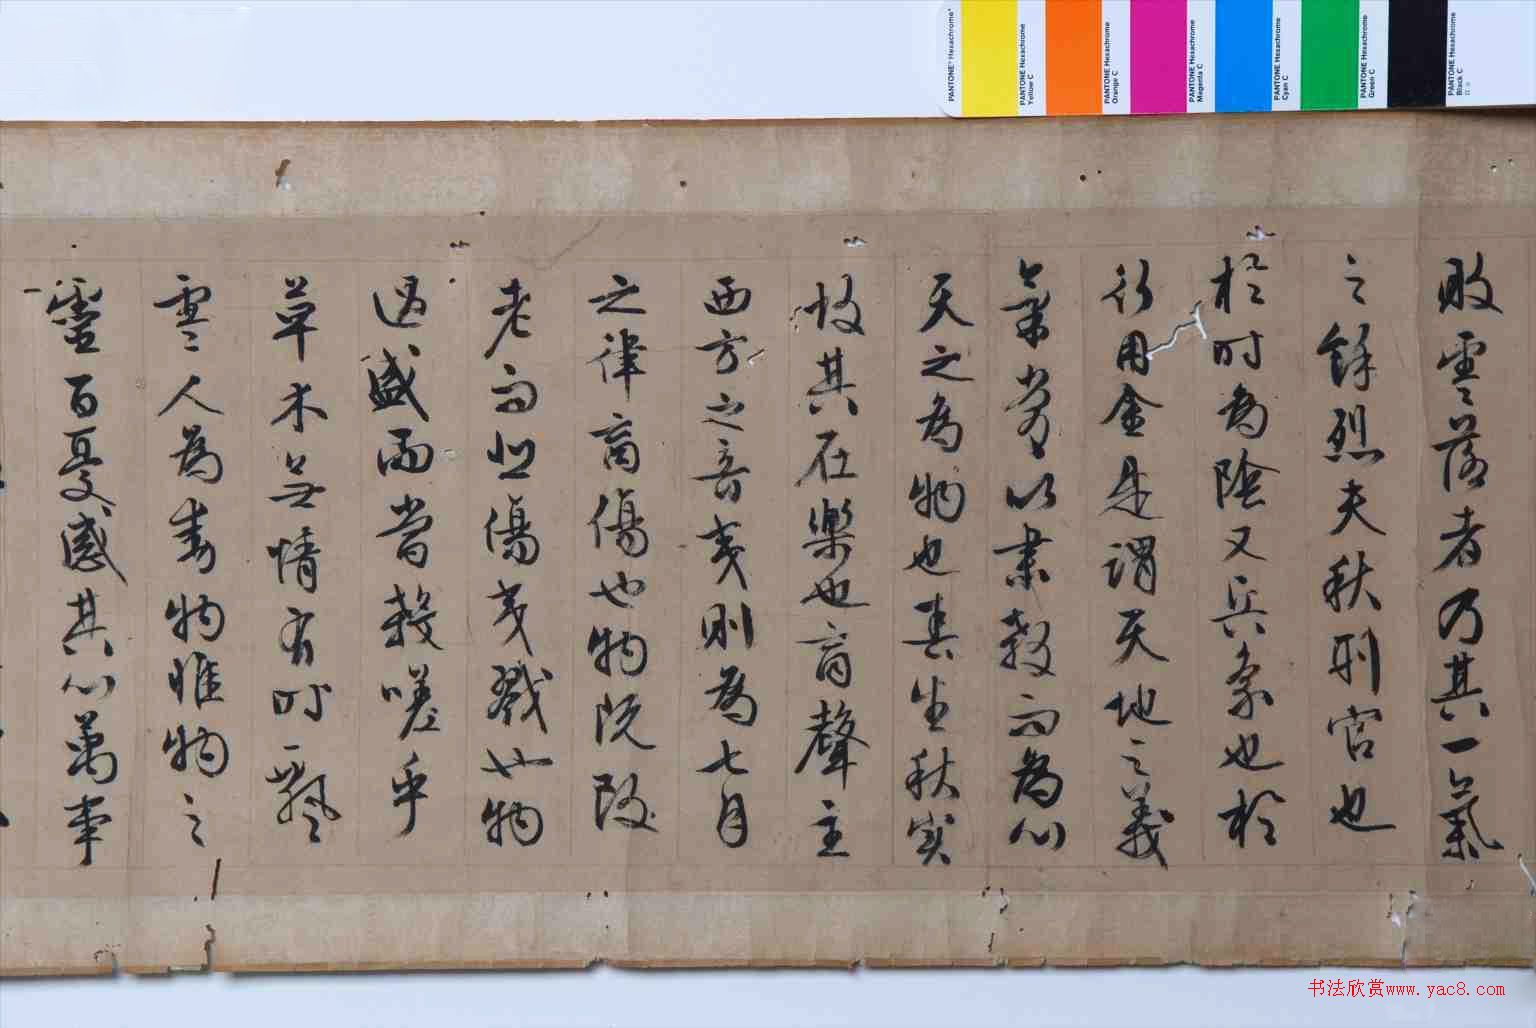 敗零落者乃其一氣
之餘烈夫秋刑官也
於時為陰又兵象也於
行用金是謂天地之義
氣常以肅殺而為心
天之為物也春生秋實
故其在樂也商聲主
西方之音夷則為七月
之律商傷也物既
老而悲傷夷戮也物
過盛而當殺嗟乎
草木無情有時飄
零人為動物惟物之
靈百憂感其心萬事
PANTONE® Hexachrome
PANTONE Hexachrome
Yellow C
PANTONE Hexachrome
Orange C
PANTONE Hexachrome
Magenta C
PANTONE Hexachrome
Cyan C
PANTONE Hexachrome
Green C
PANTONE Hexachrome
Black C
书法欣赏www.yac8.com